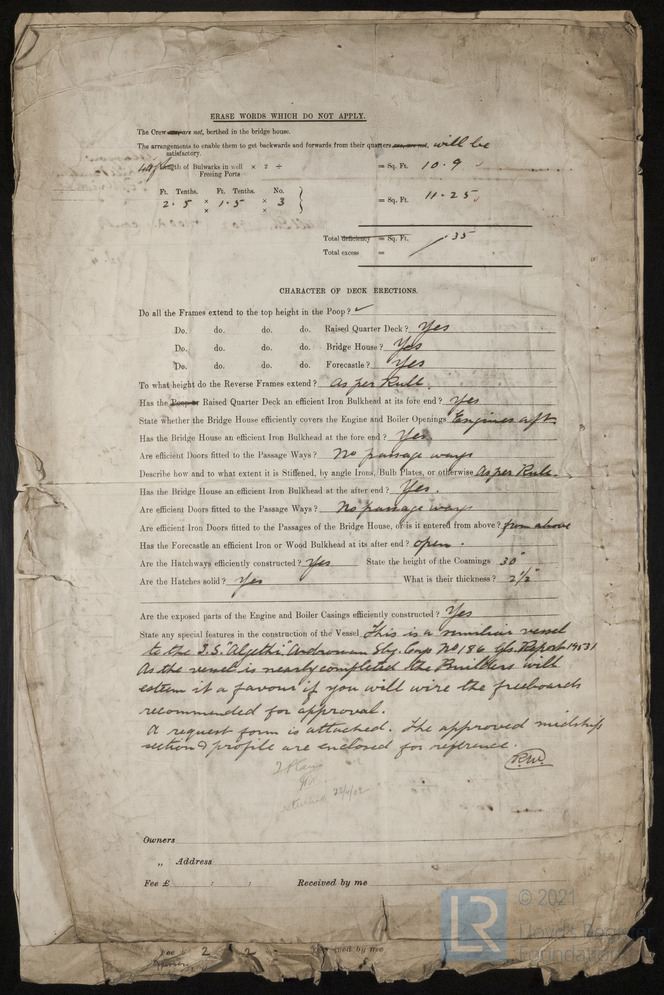 ERASE WORDS WHICH DO NOT APPLY.
The Crew are, are not, berthed in the bridge house.
The arrangements to enable them to get backwards and forwards from their quarters are, are not, will be
satisfactory.
Length of Bulwarks in well × 2 ÷ = Sq. Ft. 10.9
Freeing Ports
Ft. Tenths. Ft. Tenths. No.
2.5 × 1.5 × 3 = Sq. Ft. 11.25
× ×
Total deficiency = Sq. Ft. .35
Total excess =
CHARACTER OF DECK ERECTIONS.
Do all the Frames extend to the top height in the Poop? ✓
Do. do. do. do. Raised Quarter Deck? Yes
Do. do. do. do. Bridge House? Yes
Do. do. do. do. Forecastle? Yes
To what height do the Reverse Frames extend? As per Rule.
Has the Poop or Raised Quarter Deck an efficient Iron Bulkhead at its fore end? Yes
State whether the Bridge House efficiently covers the Engine and Boiler Openings Engines aft.
Has the Bridge House an efficient Iron Bulkhead at the fore end? Yes
Are efficient Doors fitted to the Passage Ways? No passage ways
Describe how and to what extent it is Stiffened, by angle Irons, Bulb Plates, or otherwise As per Rule
Has the Bridge House an efficient Iron Bulkhead at the after end? Yes.
Are efficient Doors fitted to the Passage Ways? No passage ways
Are efficient Iron Doors fitted to the Passages of the Bridge House, or is it entered from above? from above
Has the Forecastle an efficient Iron or Wood Bulkhead at its after end? open.
Are the Hatchways efficiently constructed? Yes State the height of the Coamings 30"
Are the Hatches solid? Yes What is their thickness? 2½"
Are the exposed parts of the Engine and Boiler Casings efficiently constructed? Yes
State any special features in the construction of the Vessel This is a similar vessel
to the S.S. "Algethi" Ardrossan Sbg. Coys No 186 Gls. Report 19531
As the vessel is nearly completed the Builders will
esteem it a favour if you will wire the freeboards
recommended for approval.
A request form is attached. The approved midship
section & profile are enclosed for reference.
R.W.
22/4/02
Owners
„ Address
Fee £ : : Received by me
Fee 2 2 Received by me
LR © 2021
Lloyd's Register
Foundation